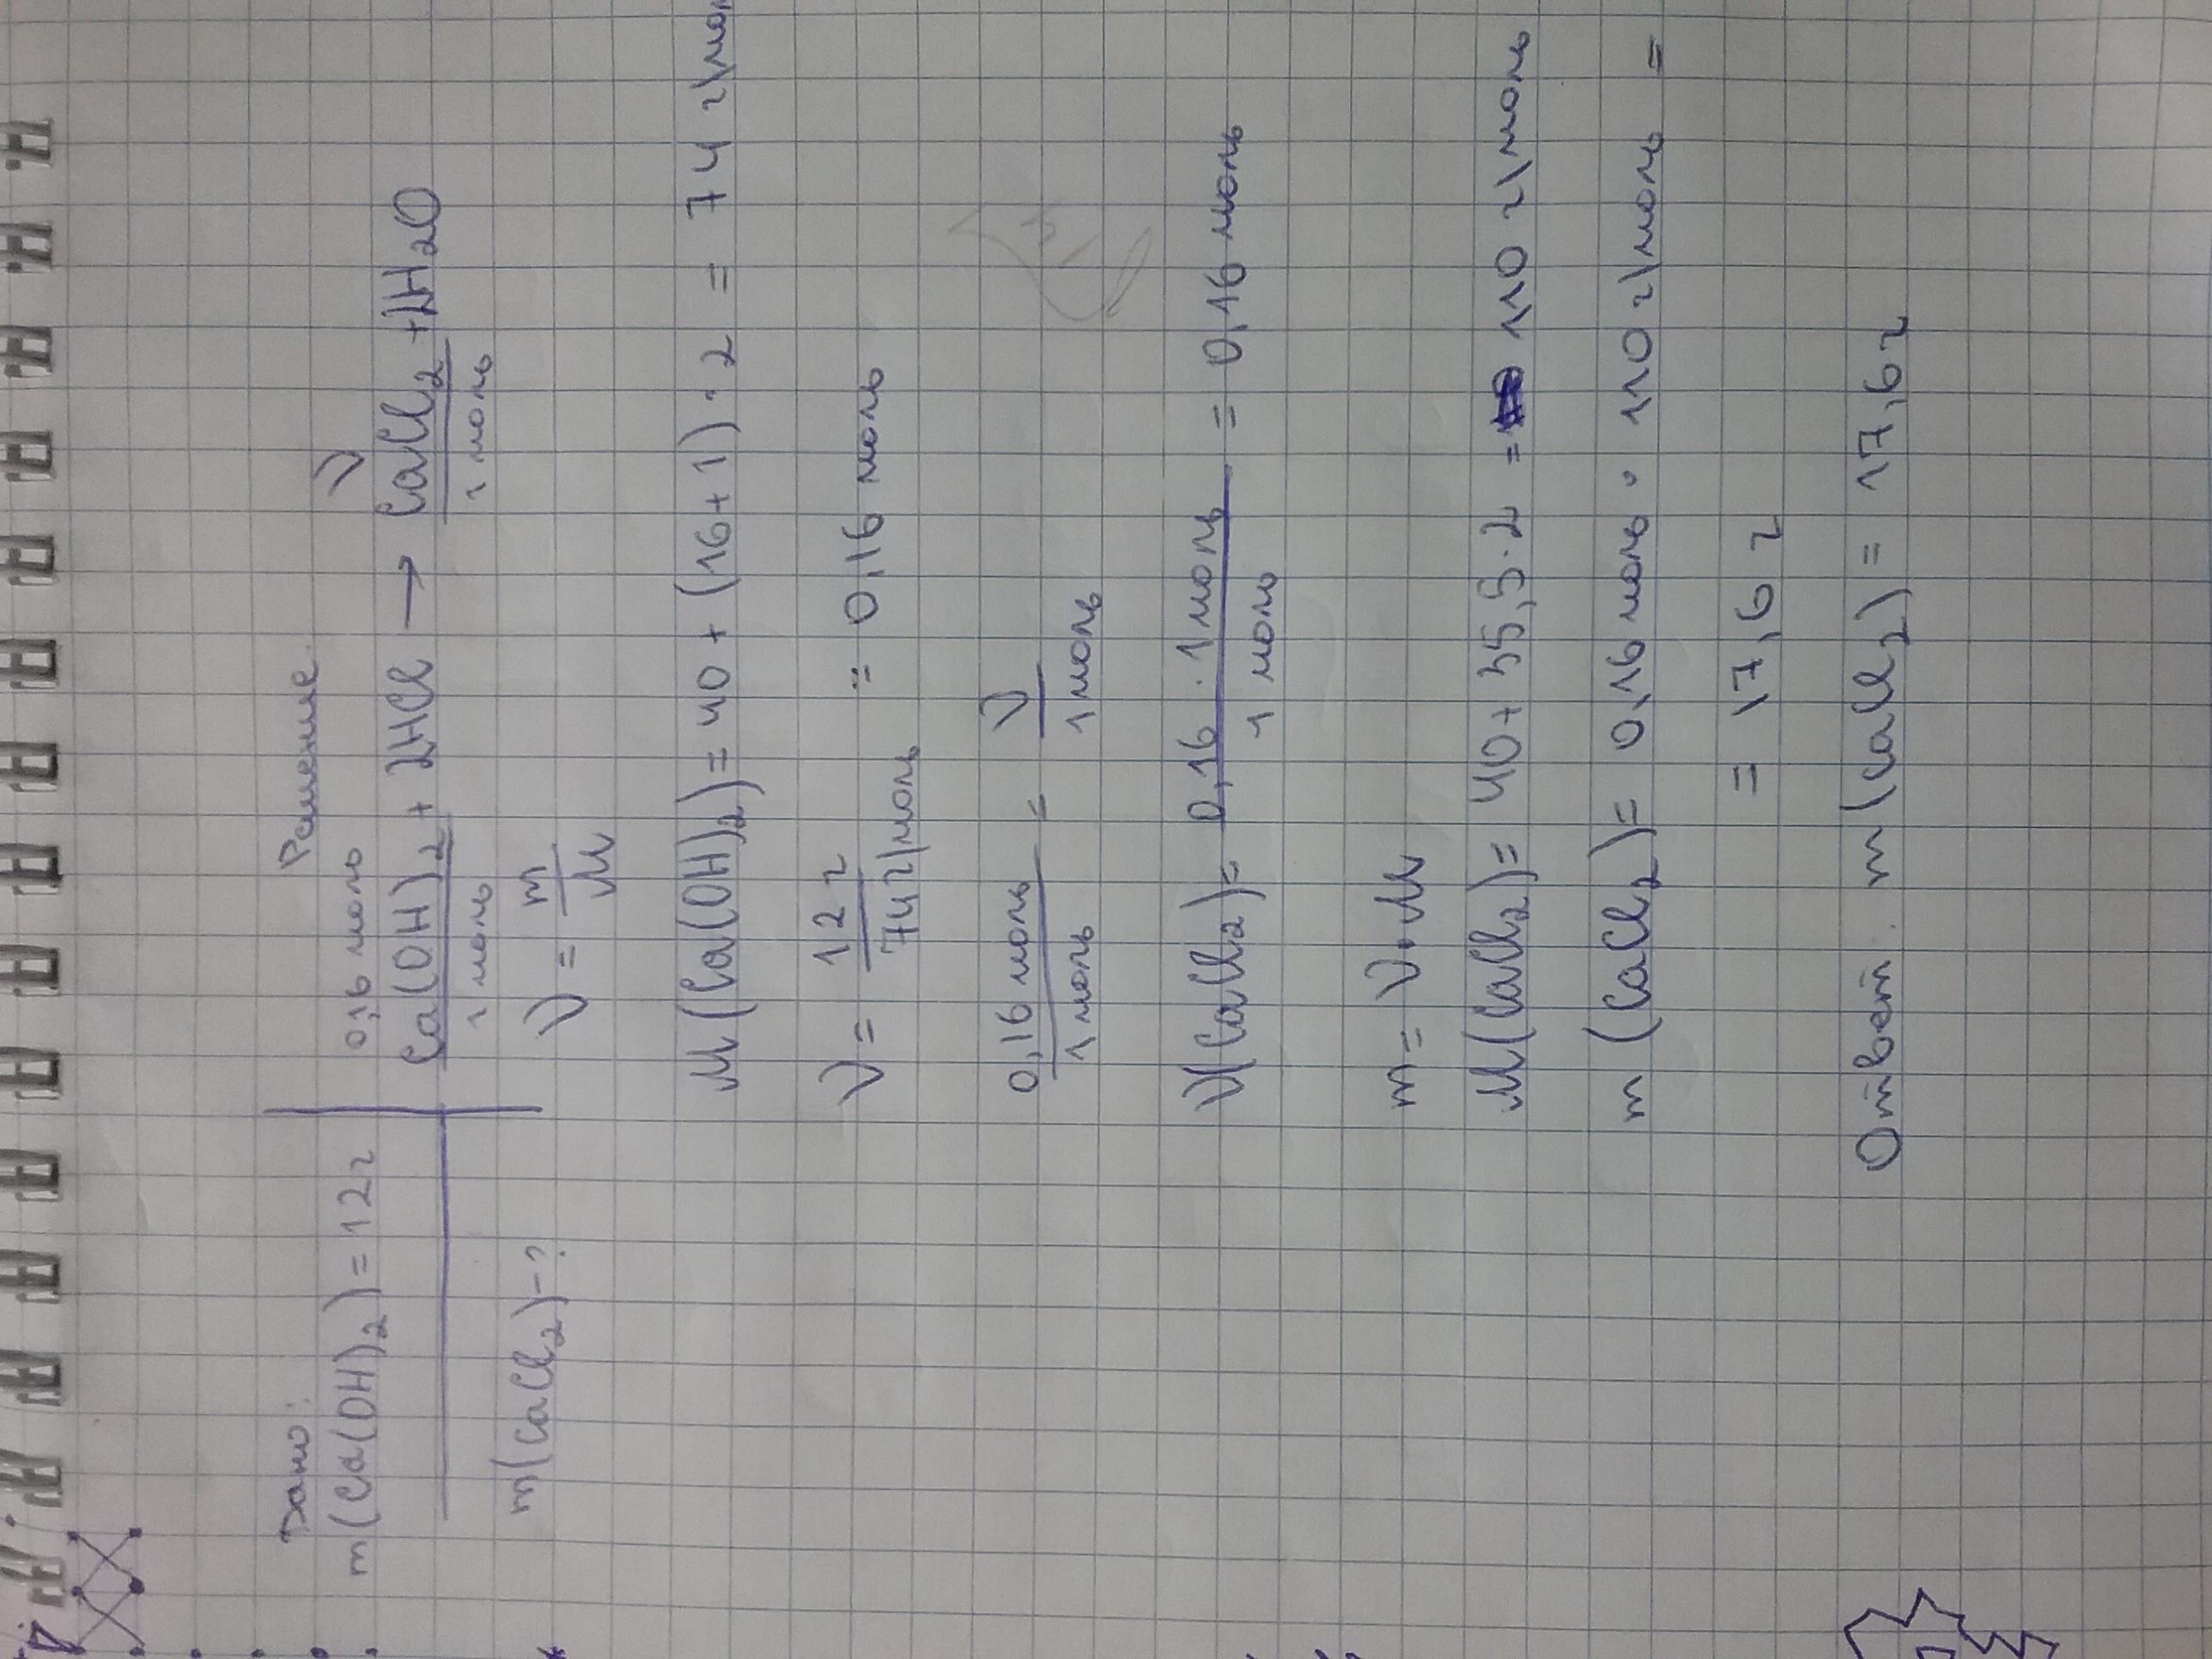 Дано:
m(Ca(OH)2)=12г
m(CaCl2)-?
Решение
0,16 моль ν
Ca(OH)2 + 2HCl → CaCl2 + 2H2O
1 моль 1 моль
ν = m/M
M(Ca(OH)2)= 40 + (16+1)·2 = 74 г\мол
ν = 12 г/74 г\моль = 0,16 моль
0,16 моль/1 моль = ν/1 моль
ν(CaCl2)= 0,16·1моль/1 моль = 0,16 моль
m = ν·M
M(CaCl2)= 40+35,5·2 = 110 г\моль
m (CaCl2)= 0,16 моль · 110 г\моль =
= 17,6 г
Ответ: m(CaCl2) = 17,6г